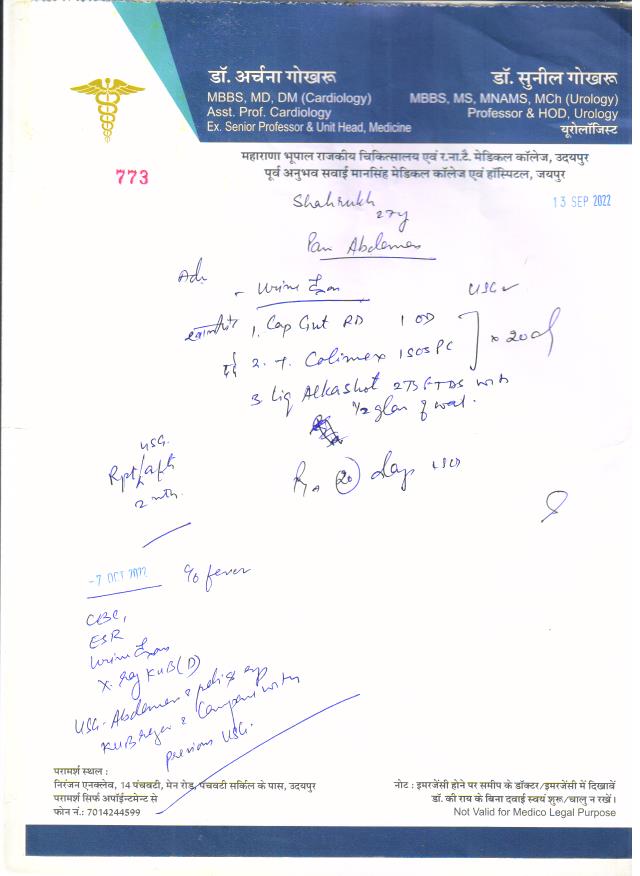 डॉ. अर्चना गोखरू
MBBS, MD, DM (Cardiology)
Asst. Prof. Cardiology
Ex. Senior Professor & Unit Head, Medicine
डॉ. सुनील गोखरू
MBBS, MS, MNAMS, MCh (Urology)
Professor & HOD, Urology
यूरोलॉजिस्ट
महाराणा भूपाल राजकीय चिकित्सालय एवं र.ना.टै. मेडिकल कॉलेज, उदयपुर
पूर्व अनुभव सवाई मानसिंह मेडिकल कॉलेज एवं हॉस्पिटल, जयपुर
773
13 SEP 2022
Shahrukh
27y
Pain Abdomen
Adv.
- Urine Exam
USG
1. Cap Gut RD 1 OD
2. T. Colimex 1 SOS PC
x 20 d
3 Liq Alkashot 2TSF TDS with
1/2 glass of wat.
USG.
Rpt after
2 mth.
20 days
-7 OCT 2022
c/o fever
CBC,
ESR
Urine Exam
X-Ray KUB (D)
USG - Abdomen &
KUB region & Compare with
previous USG.
परामर्श स्थल :
निरंजन एनक्लेव, 14 पंचवटी, मेन रोड, पंचवटी सर्किल के पास, उदयपुर
परामर्श सिर्फ अपॉईन्टमेन्ट से
फोन नं.: 7014244599
नोट : इमरजेंसी होने पर समीप के डॉक्टर/इमरजेंसी में दिखावें
डॉ. की राय के बिना दवाई स्वयं शुरू/चालु न रखें।
Not Valid for Medico Legal Purpose